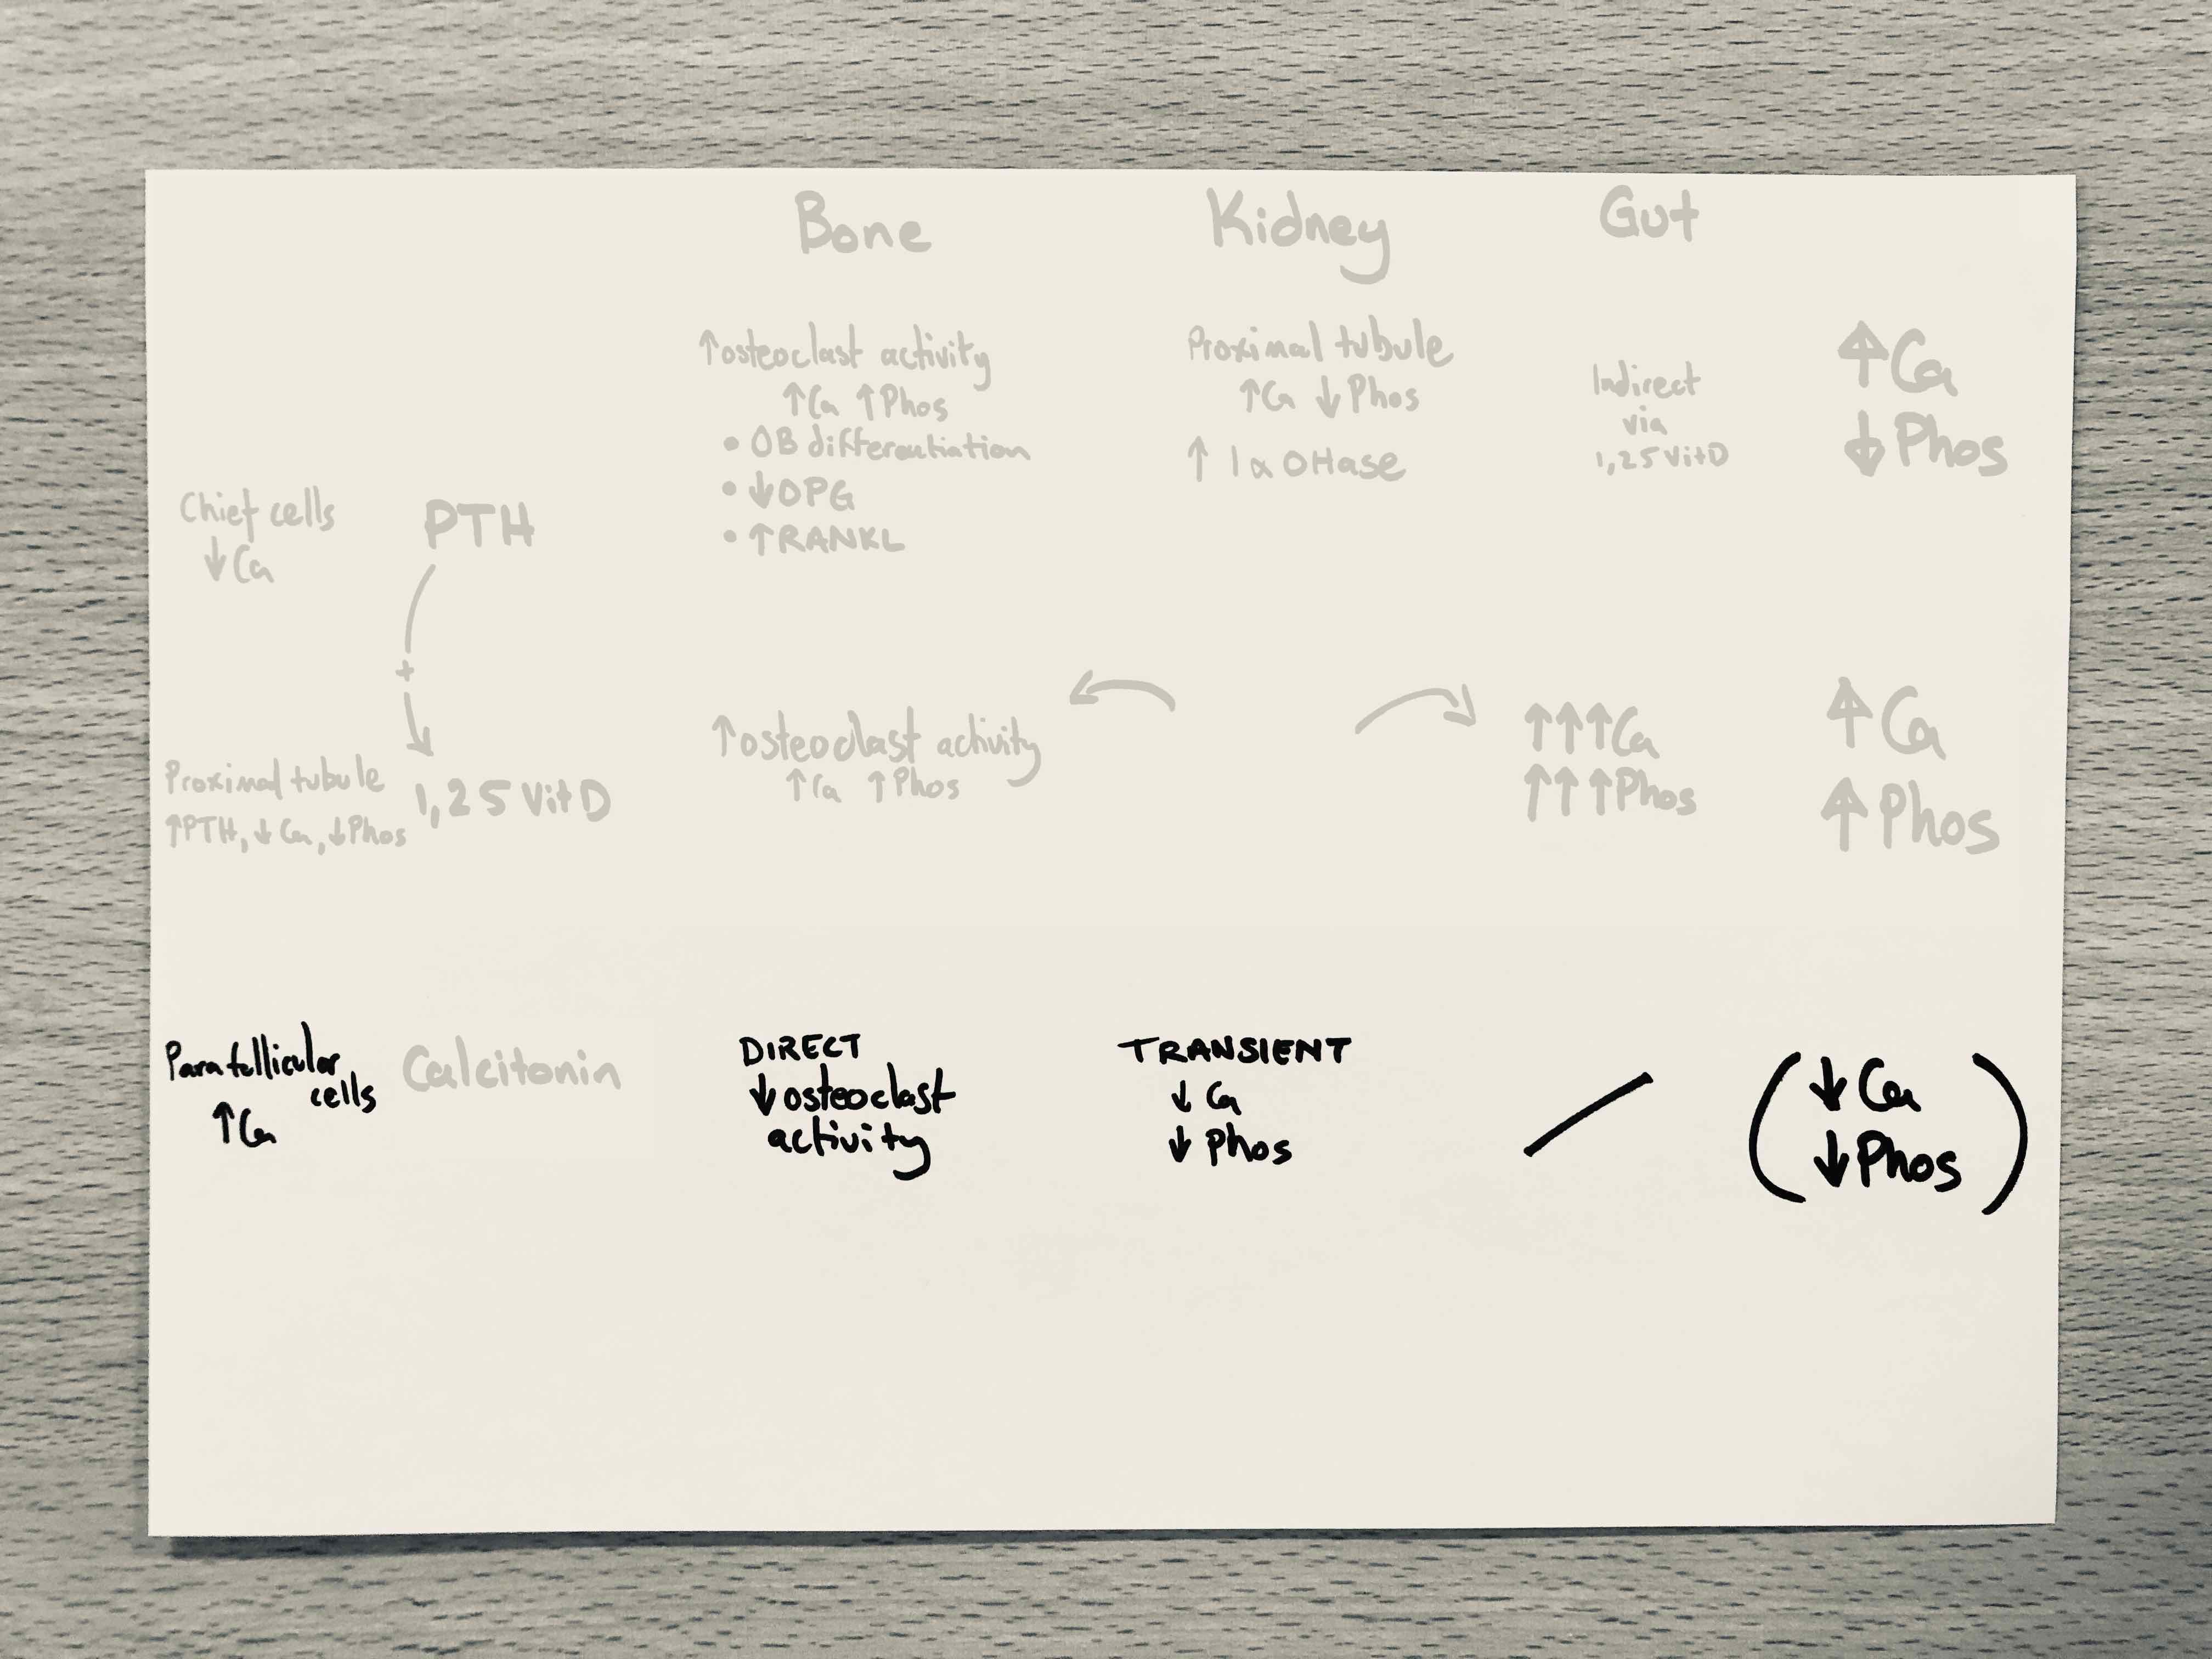 Bone Kidney Gut
↑osteoclast activity
↑Ca ↑Phos
• OB differentiation
• ↓OPG
• ↑RANKL
Proximal tubule
↑Ca ↓Phos
↑ 1α OHase
Indirect
via
1,25 VitD
↑Ca
↓Phos
Chief cells
↓Ca
PTH
+
Proximal tubule
↑PTH, ↓Ca, ↓Phos
1,25 VitD
↑osteoclast activity
↑Ca ↑Phos
↑↑↑Ca
↑↑↑Phos
↑Ca
↑Phos
Parafollicular
cells
↑Ca
Calcitonin
DIRECT
↓osteoclast
activity
TRANSIENT
↓ Ca
↓ Phos
(↓Ca
↓Phos)